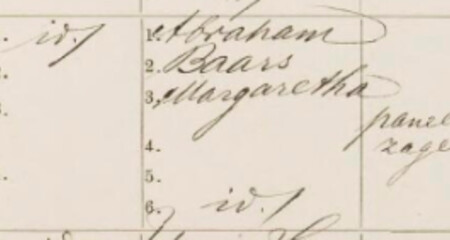 id.
1. Abraham
2. Baars
3. Margaretha
4.
5.
6. id.